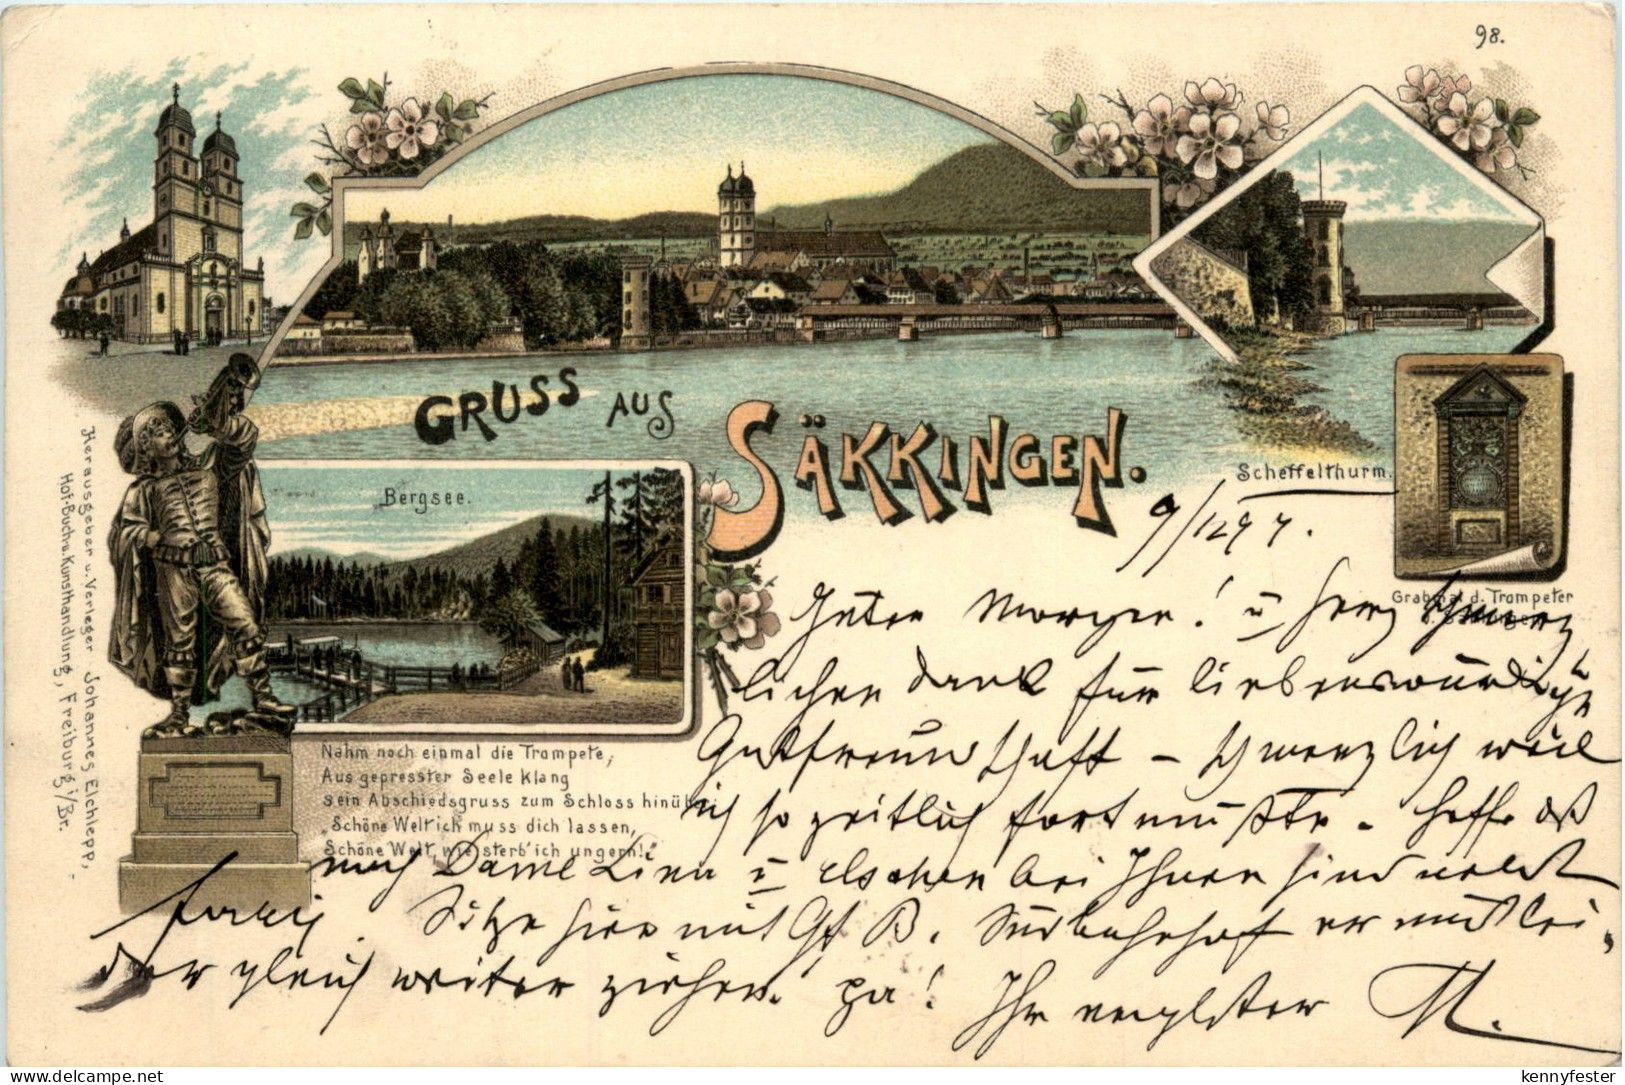 98.
GRUSS AUS
SÄKKINGEN.
Bergsee.
Scheffelthurm.
Grabmal d. Trompeter
Herausgeber u. Verleger Johannes Elchlepp,
Hof-Buch u. Kunsthandlung, Freiburg i/Br.
Nahm noch einmal die Trompete,
Aus gepresster Seele klang
sein Abschiedsgruss zum Schloss hinüb
"Schöne Welt ich muss dich lassen,
Schöne Welt, wie sterb' ich ungern!"
9/12 97.
Guten Morgen! u herz schmerz
lichen Dank für liebenswürdige
Gastfreundschaft – schmerzlich weil
ich so zeitlich fort mußte. Hoffe daß
auch Dame u Elschen bei Ihnen sind
Sitze hier mit Gf B. Südbahnhof er muß lei
der gleich weiter ziehen! pa! Ihr
kennyfester